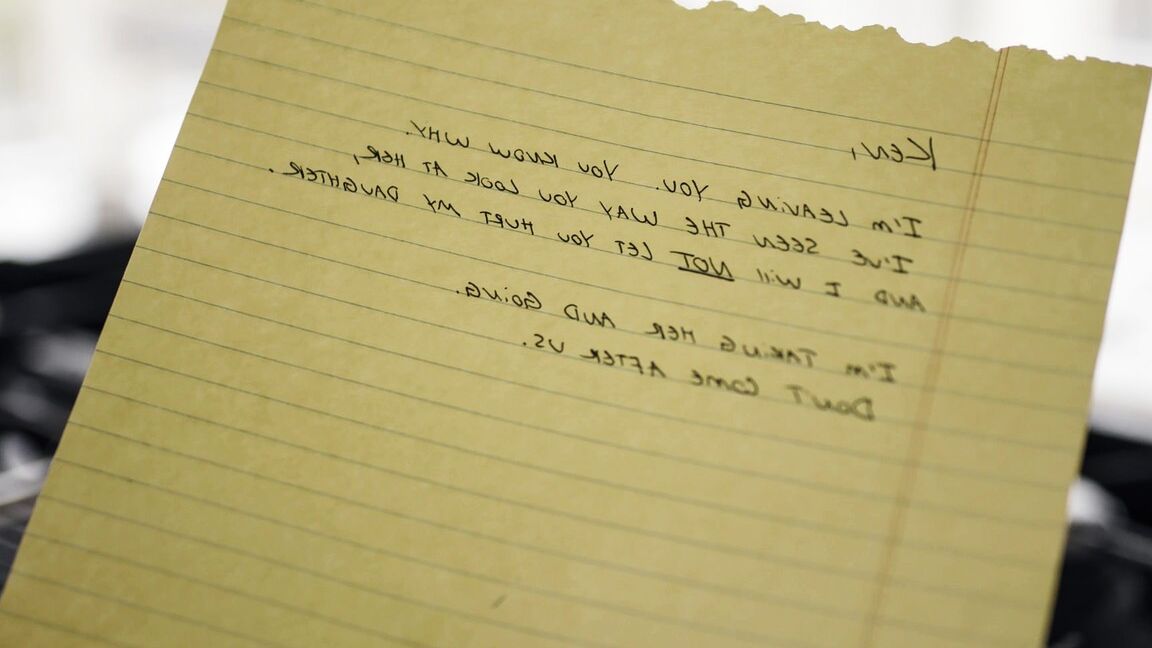 KEN,
I'M LEAVING YOU. YOU KNOW WHY.
I'VE SEEN THE WAY YOU LOOK AT HER,
AND I WILL NOT LET YOU HURT MY DAUGHTER.
I'M TAKING HER AND GOING.
DON'T COME AFTER US.